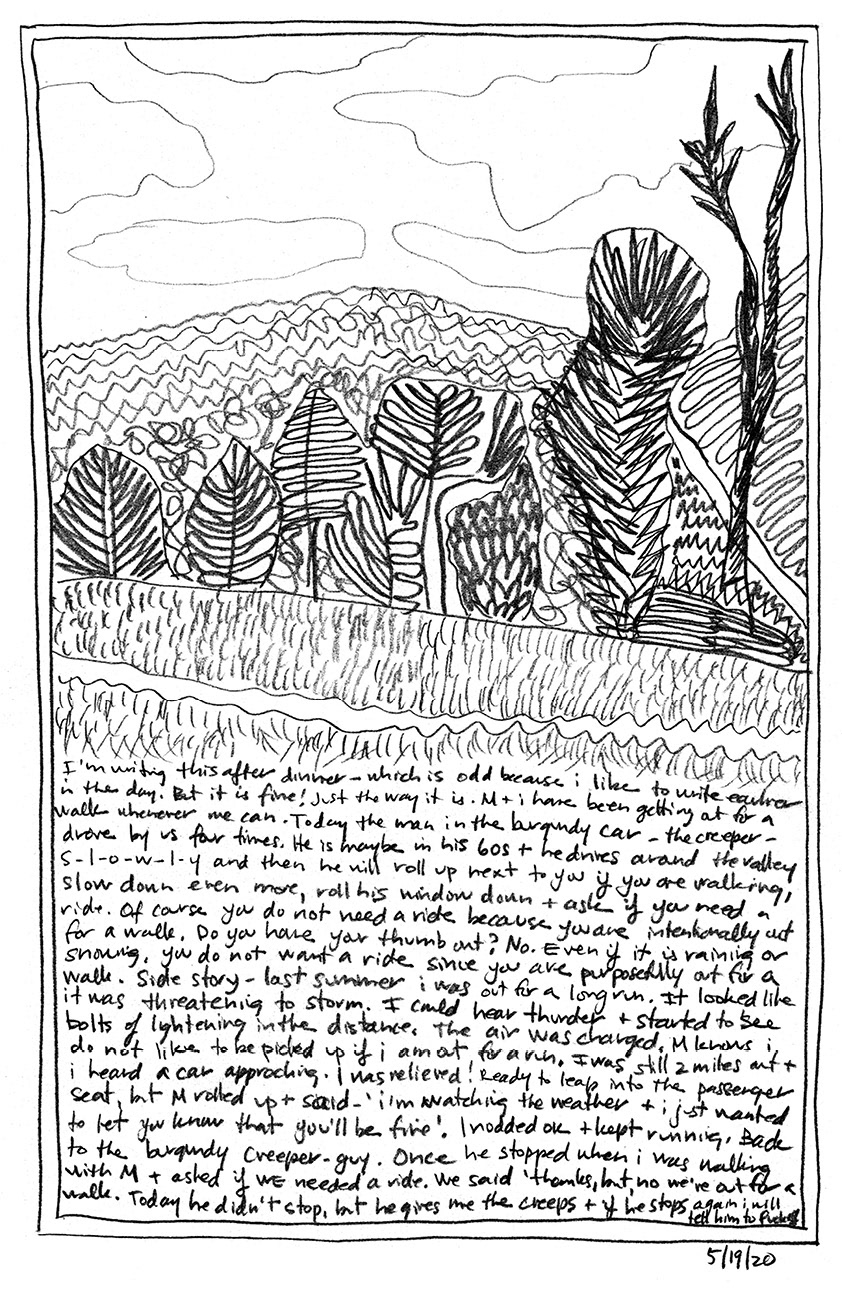 I'm writing this after dinner - which is odd because i like to write earlier
in the day. But it is fine! Just the way it is. M + i have been getting out for a
walk whenever we can. Today the man in the burgundy car - the creeper -
drove by us four times. He is maybe in his 60s + he drives around the valley
S-l-o-w-l-y and then he will roll up next to you if you are walking,
slow down even more, roll his window down + ask if you need a
ride. Of course you do not need a ride because you are intentionally out
for a walk. Do you have your thumb out? No. Even if it is raining or
snowing, you do not want a ride since you are purposefully out for a
walk. Side story - last summer i was out for a long run. It looked like
it was threatening to storm. I could hear thunder + started to see
bolts of lightening in the distance. The air was charged. M knows i
do not like to be picked up if i am out for a run. I was still 2 miles out +
i heard a car approching. I was relieved! Ready to leap into the passenger
seat, but M rolled up + said - 'i'm watching the weather + i just wanted
to let you know that you'll be fine'. I nodded ok + kept running. Back
to the burgundy creeper-guy. Once he stopped when i was walking
with M + asked if WE needed a ride. We said 'thanks, but, no we're out for a
walk. Today he didn't stop, but he gives me the creeps + if he stops again i will
tell him to fuck off
5/19/20